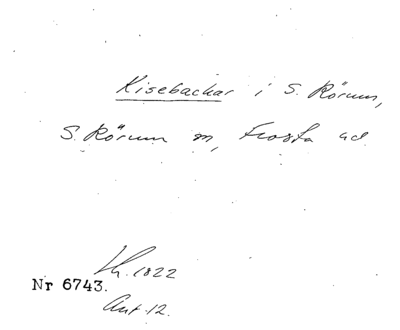 Kisebackar i S. Rörum,
S. Rörum sn, Frosta hd
Lh. 1822
Nr 6743.
Ant. 12.